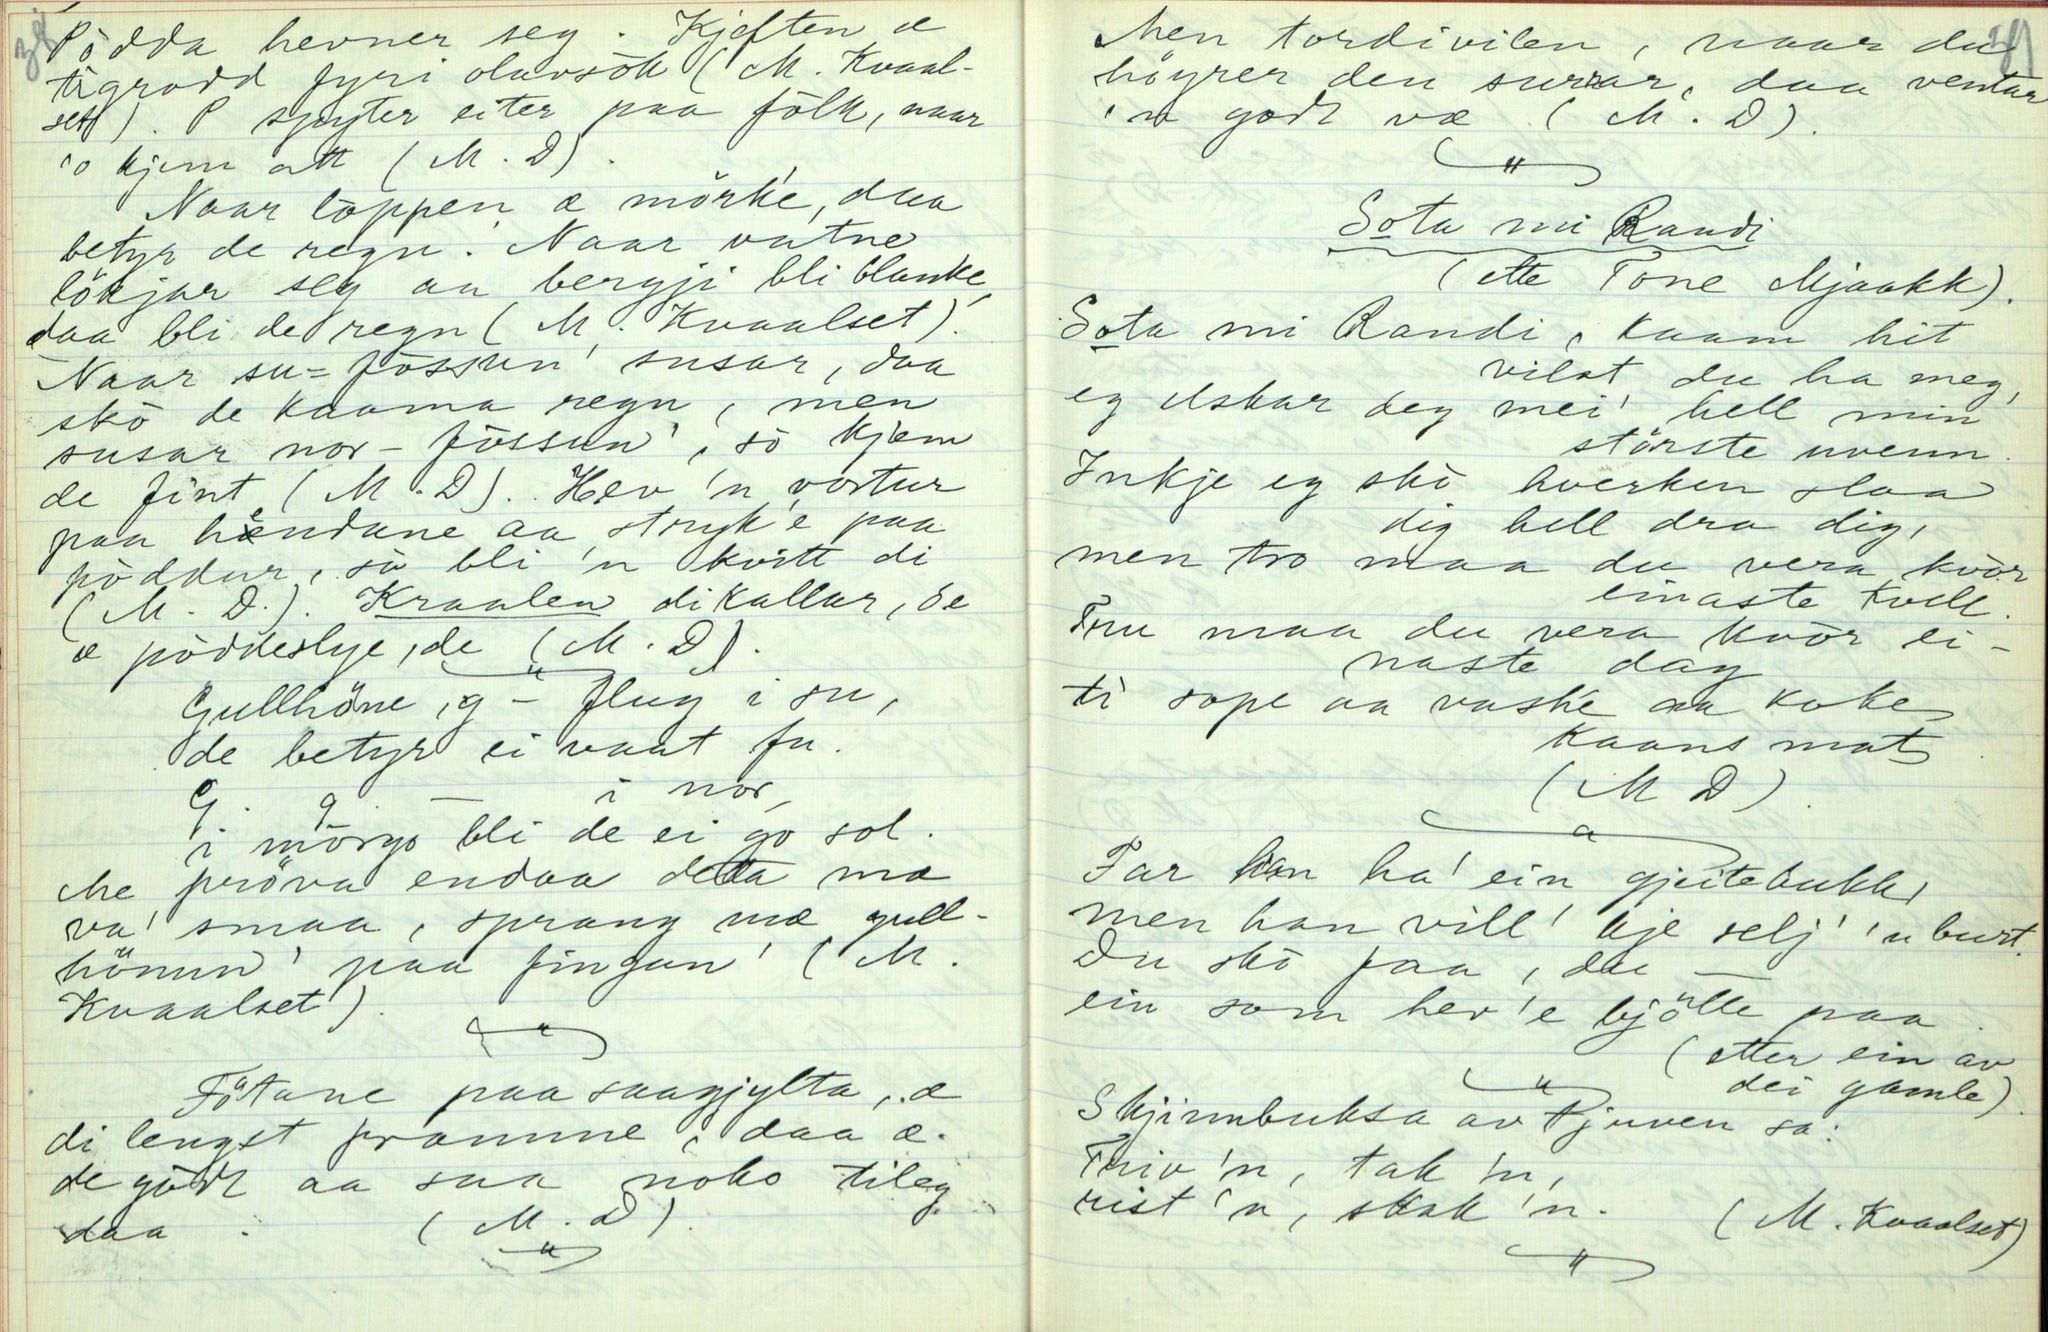 38
Pödda hevner seg. Kjeften æ
tigrodd fyri olavsök (M. Kvaal-
set). P spyter eiter paa fölk, naar
'o kjem att (M. D).
Naar löppen æ mörk'e, daa
betyr de regn. Naar vatne
lökjar seg aa bergji bli blanke,
daa bli de regn (M. Kvaalset).
Naar su-fössun' susar, daa
skö de kaama regn, men
susar nor-fössun', sö kjem
de fint (M. D). Hev 'n vortur
paa hendane aa stryk'e paa
pöddur, sö bli 'n kvitt di
(M. D.). Kraalen di kallar, de
æ pöddeslye, de (M. D).
"
Gullhöne, g - flug i su,
de betyr ei vaat fu.
G. g. — i nor,
i mörgo bli de ei go sol.
Me pröva endaa detta mæ
va' smaa, sprang mæ gull-
hönun' paa fingan' (M.
Kvaalset).
"
Fötane paa saagjylta, æ
di lengst framme, daa æ
de gödt aa saa noko tileg
daa. (M. D)
"
39
Men tordivilen, naar du
höyrer den surrar, daa ventar
'n godt væ (M. D).
"
Sota mi Randi
(ette Tone Mjaakk).
Sota mi Randi, kaam hit
vilst du ha meg,
eg elskar deg mei' hell min
störste uvenn.
Inkje eg skö hverken slaa
dig hell dra dig,
men tro maa du vera kvör
einaste kvell.
Tru maa du vera kvör ei-
naste dag
ti sope aa vaske aa koke
kaans mat
(M D).
"
Far han ha' ein gjeitebukk,
men han vill' kje selj' 'n burt.
Du skö faa, du —
ein som hev 'e kjötte paa.
(etter ein av
dei gamle)
"
Skjinnbuksa av Tjuven sa:
Triv 'n, tak 'n,
rist 'n, skak 'n.
(M. Kvaalset)
"